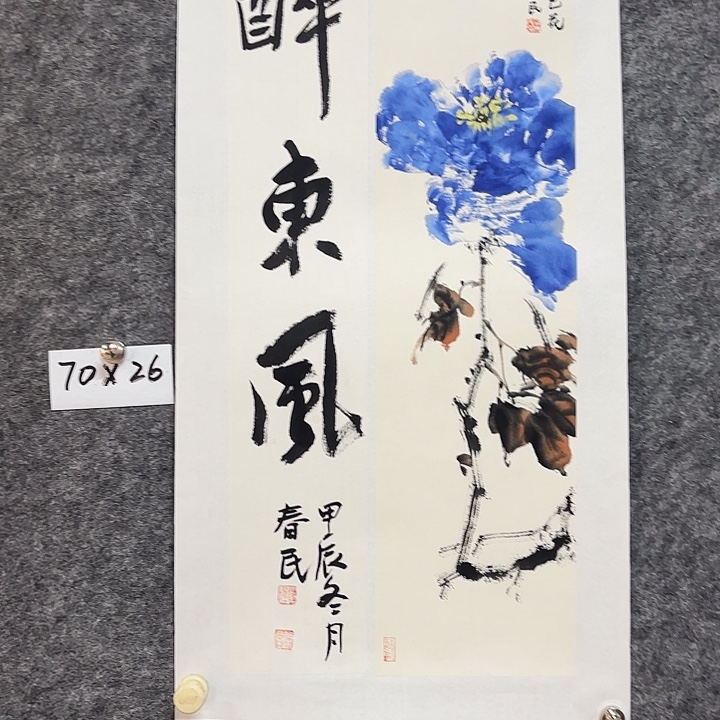 醉
東
風
甲辰冬月
春民
花
民
70x26